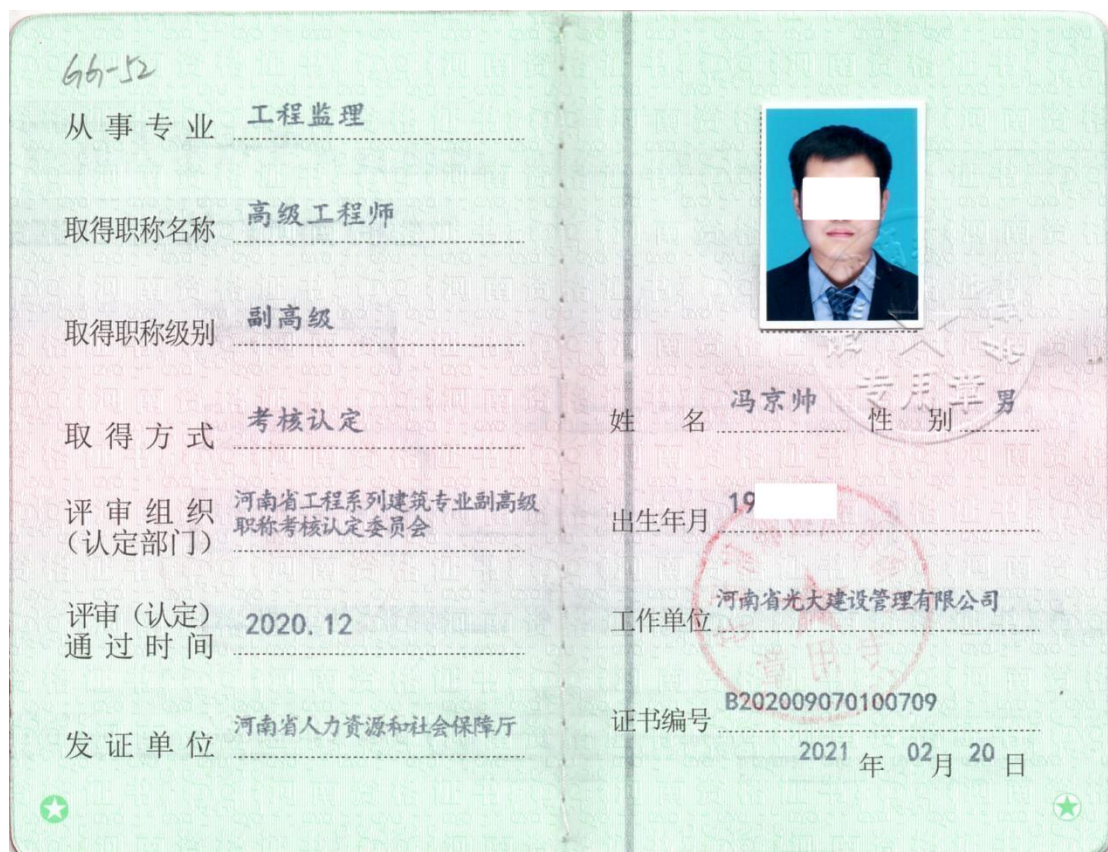 GG-52
从事专业 工程监理
取得职称名称 高级工程师
取得职称级别 副高级
取得方式 考核认定
评审组织 河南省工程系列建筑专业副高级
（认定部门） 职称考核认定委员会
评审（认定）
通过时间 2020.12
发证单位 河南省人力资源和社会保障厅
专用章
姓名 冯京帅 性别 男
出生年月 19
工作单位 河南省光大建设管理有限公司
证书编号 B202009070100709
2021 年 02 月 20 日